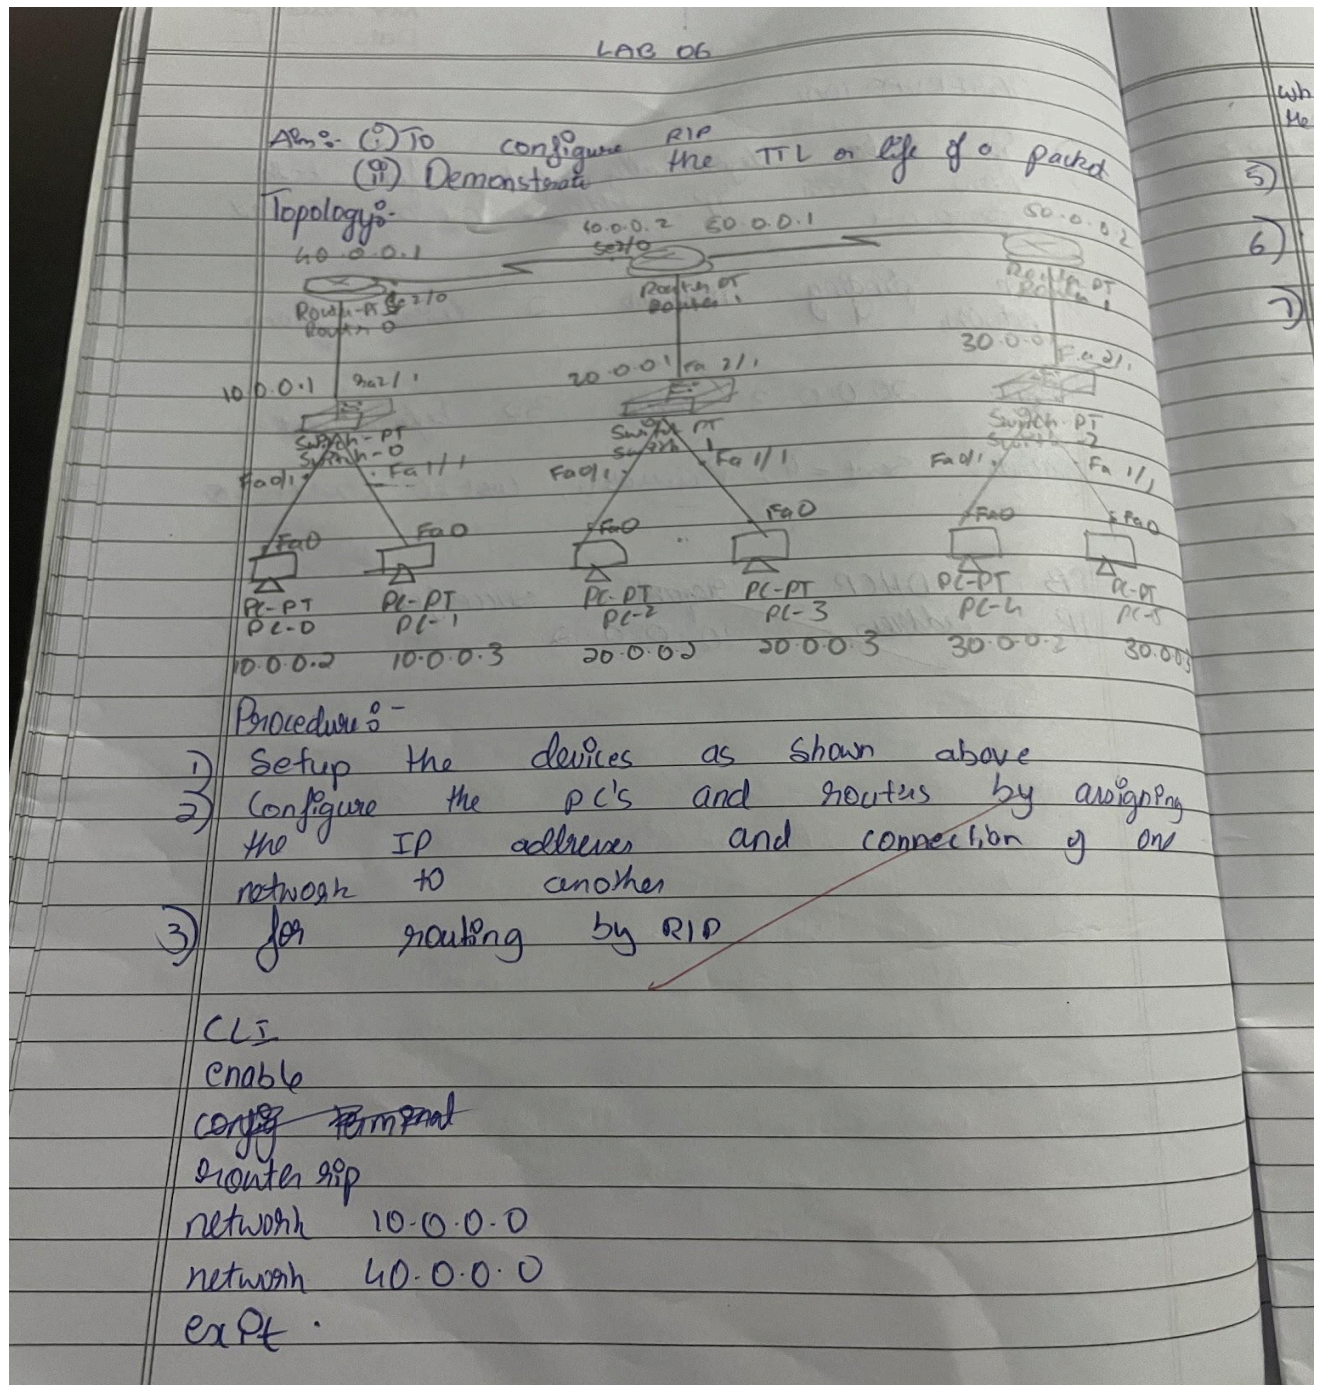 LAB 06
wh
He
Aim:- (i) To configure RIP
(ii) Demonstrate the TTL or life of a packet
5)
Topology:-
40.0.0.2 50.0.0.1 50.0.0.2
6)
40.0.0.1 Se2/0
Se2/0
Router-PT Router-PT Router-PT
Router 0 Router 1 Router 1
7)
30.0.0
10.0.0.1 Fa2/1 20.0.0.1 Fa 2/1 Fa 2/1
Switch-PT Switch-PT Switch-PT
Switch-0 Switch 1 Switch-2
Fa0/1 Fa 1/1 Fa0/1 Fa 1/1 Fa0/1 Fa 1/1
Fa0 Fa0 Fa0 Fa0 Fa0 Fa0
PC-PT PC-PT PC-PT PC-PT PC-PT PC-PT
PC-0 PC-1 PC-2 PC-3 PC-4 PC-5
10.0.0.2 10.0.0.3 20.0.0.2 20.0.0.3 30.0.0.2 30.0.0.3
Procedure:-
1) Setup the devices as shown above
2) Configure the PC's and routers by assigning
the IP addresses and connection of one
network to another
3) for routing by RIP
CLI
enable
config terminal
router rip
network 10.0.0.0
network 40.0.0.0
exit.